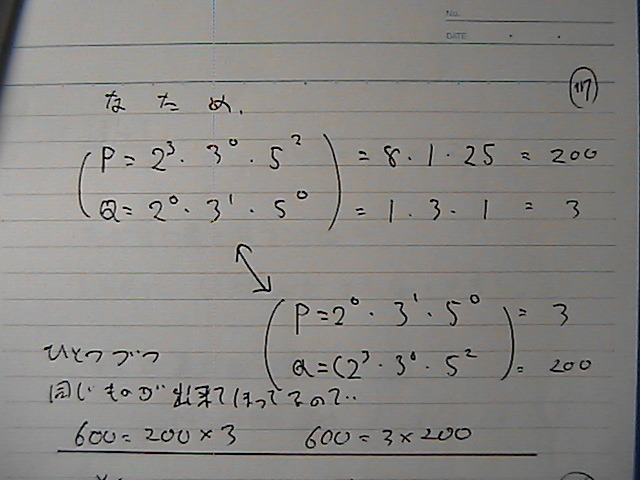 No.
DATE
117
なため.
P = 2³・3⁰・5² = 8・1・25 = 200
Q = 2⁰・3¹・5⁰ = 1・3・1 = 3
P = 2⁰・3¹・5⁰ = 3
Q = (2³・3⁰・5² = 200
ひとつづつ
同じものが出来てしまってるので‥
600 = 200 × 3 600 = 3 × 200